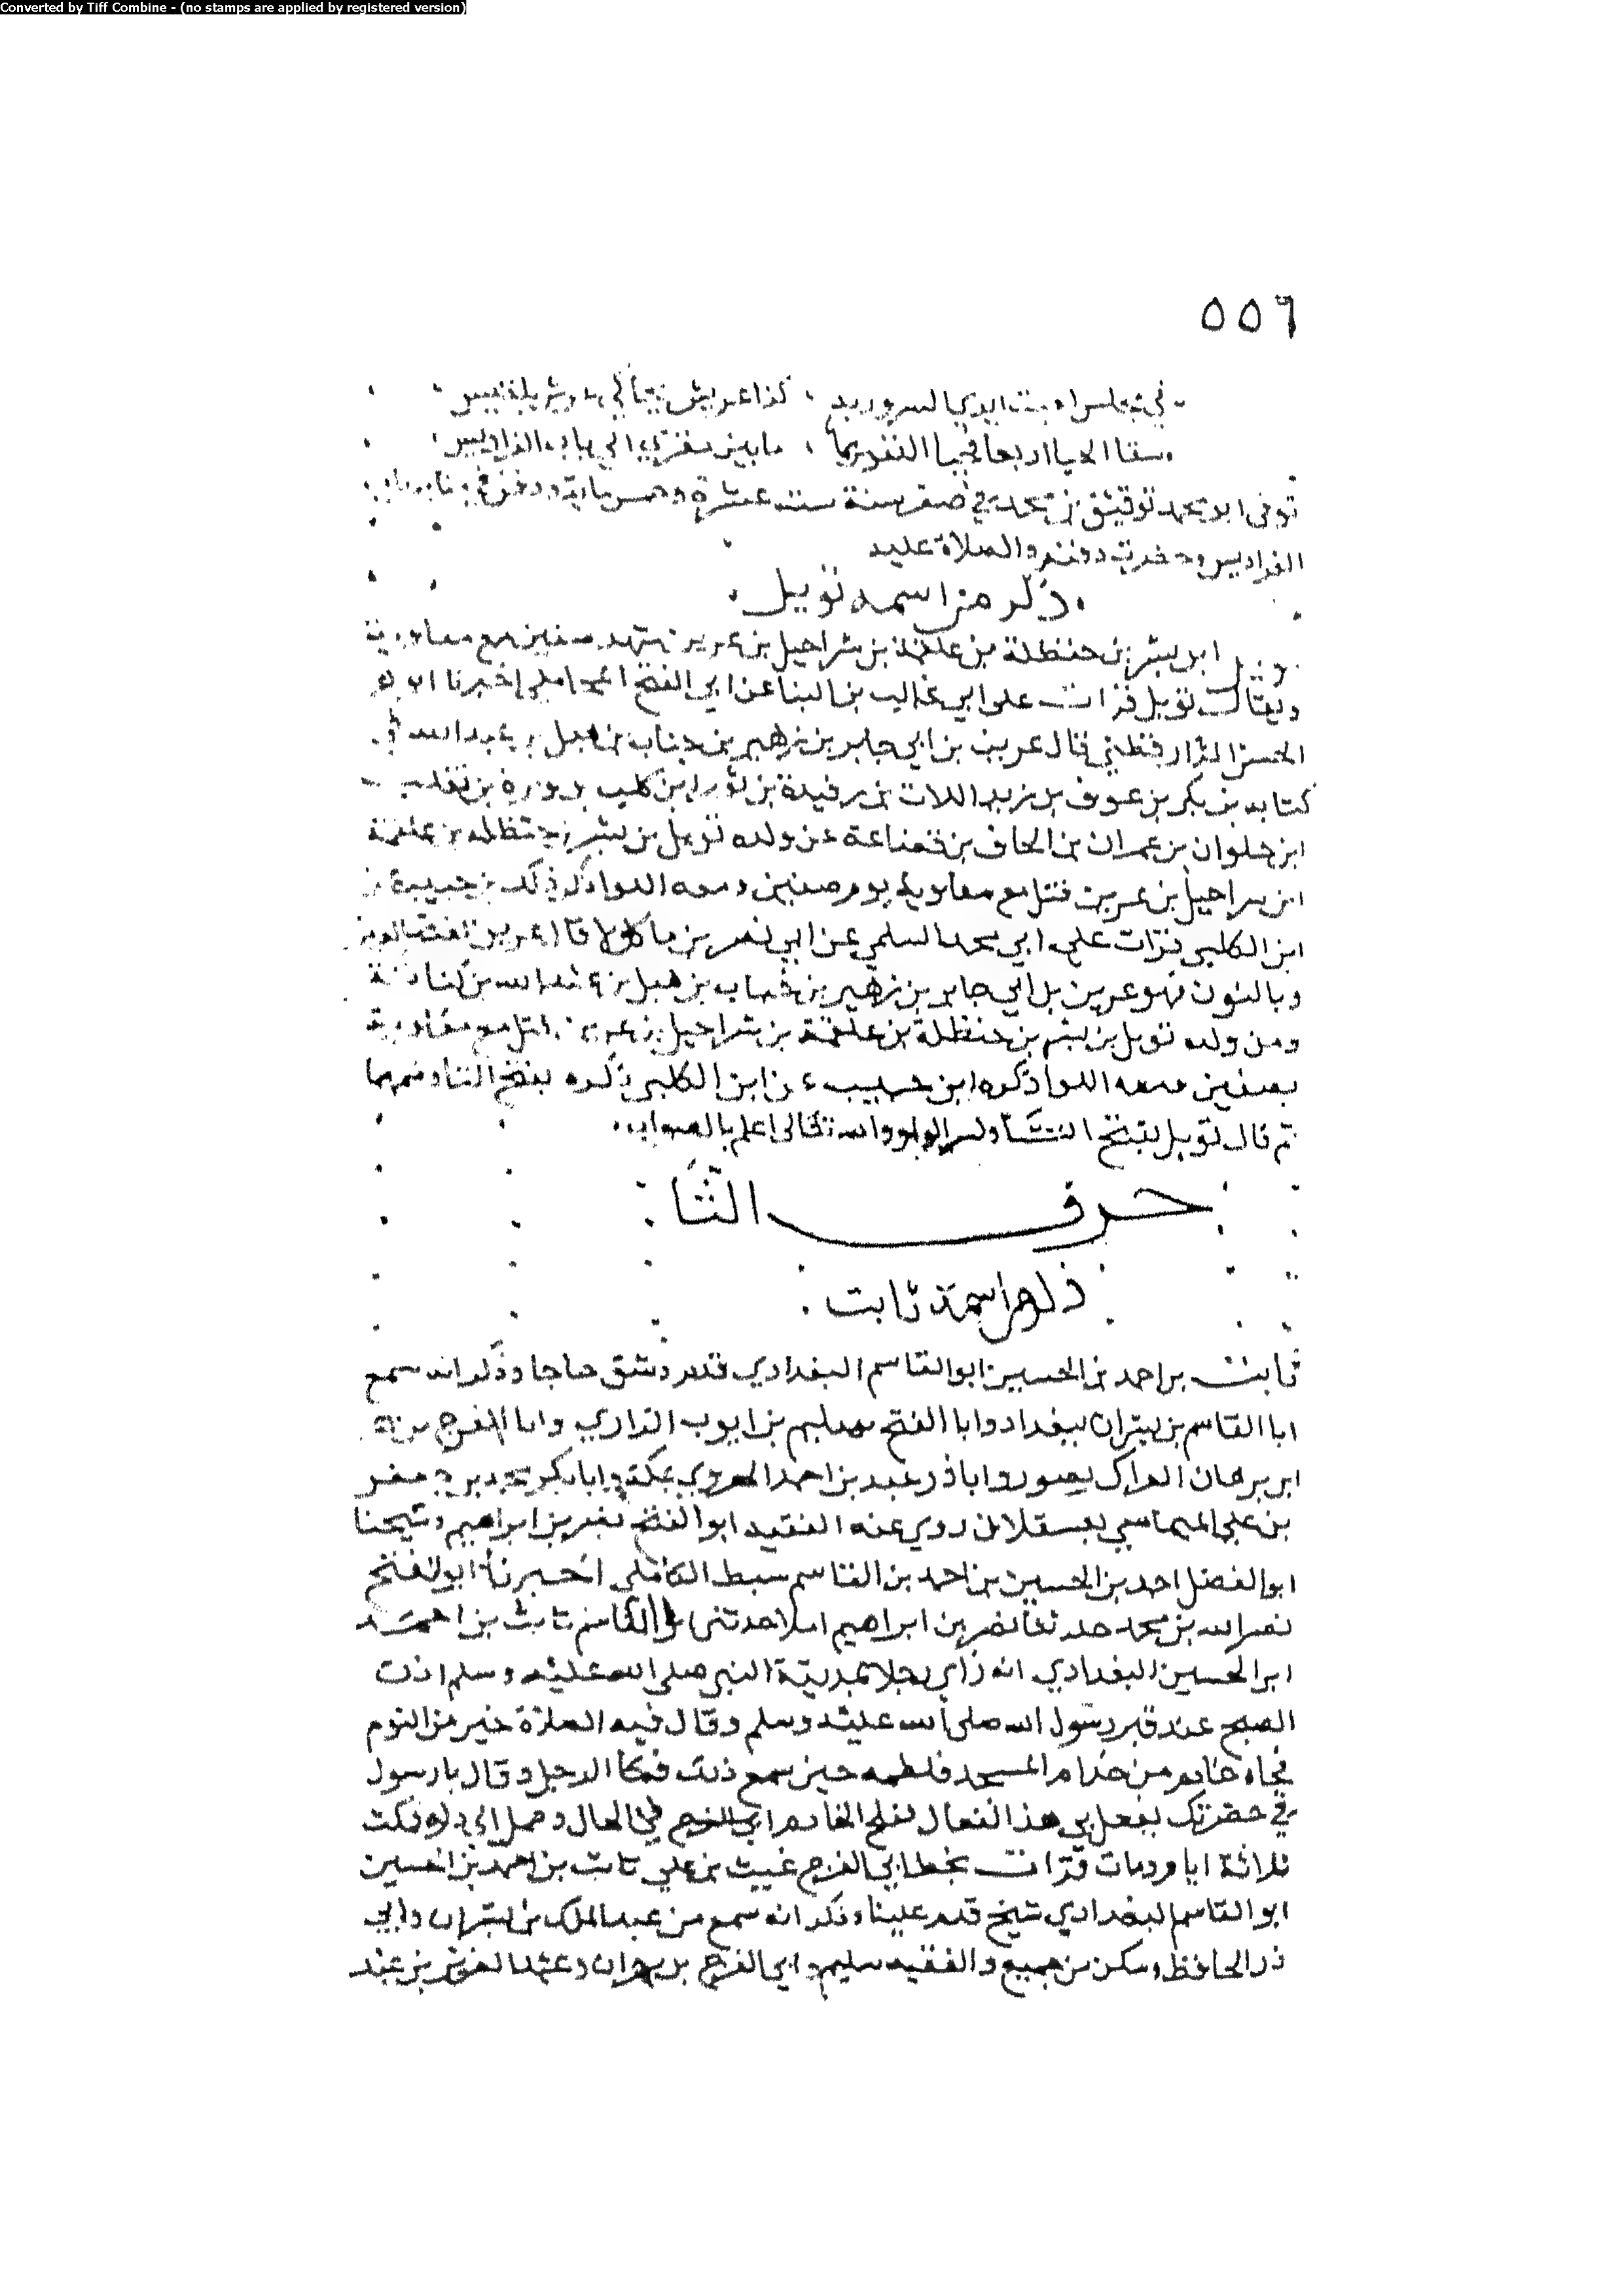 Converted by Tiff Combine - (no stamps are applied by registered version)
٥٥٦
في مجلس ايدي السرور به كذا عريش
سقا الحيا اربعا تحيا النفوس بها ما بين مقرى الى باب الفراديس
توفي ابو محمد توفيق بن محمد في صفر سنة ست عشرة وخمس ماية ودفن في
الفراديس وحضرت دفنه والصلاة عليه
ذكر من اسمه تويل
ابن بشر بن حنظلة بن علقمة بن شراحيل بن عرين شهد صفين مع معاوية
ويقال تويل قرات على ابي غالب بن البنا عن ابي الفتح المحاملي اخبرنا ابو
الحسن الدارقطني قال عرين بن ابي جابر بن زهير بن جناب بن هبل بن عبد الله بن
كنانه بن بكر بن عوف بن زيد اللات بن رفيدة بن ثور ابن كلب بن وبرة بن تغلب
ابن حلوان بن عمران بن الحاف بن قضاعة من ولده تويل بن بشر بن حنظله بن علقمة
ابن سراحيل بن عرين قتل مع معاوية يوم صفين ومعه اللوا ذكر ذلك بن حبيب عن
ابن الكلبي قرات على ابي محمد السلمي عن ابي نصر بن ماكولا قال عرين
وبالنون فهو عرين بن ابي جابر بن زهير بن جناب بن هبل بن عبد الله بن كنانة
ومن ولده تويل بن بشر بن حنظلة بن علقمة بن شراحيل بن عرين قتل مع معاوية
بصفين ومعه اللوا ذكره ابن حبيب عن ابن الكلبي ذكره بفتح التا وضمها
ثم قال تويل بفتح التا وكسر الواو والله تعالى اعلم بالصواب
حرف الثا
ذكر من اسمه ثابت
ثابت بن احمد بن الحسين ابو القاسم البغدادي قدم دمشق حاجا وذكر انه سمع
ابا القاسم بن بشران ببغداد وابا الفتح سليم بن ايوب الرازي وابا الفرج
ابن برهان الغزال بصور وابا ذر عبد بن احمد الهروي بمكة وابا بكر محمد بن جعفر
بن علي الميماسي بعسقلان روى عنه الفقيه ابو الفتح نصر بن ابراهيم وشيخنا
ابو الفضل احمد بن الحسين بن احمد بن القاسم سبط الكاملي اخبرنا ابو الفتح
نصر الله بن محمد حدثنا نصر بن ابراهيم املا حدثني ابو القاسم ثابت بن احمد
ابن الحسين البغدادي انه راى رجلا بمدينة النبي صلى الله عليه وسلم اذن
الصبح عند قبر رسول الله صلى الله عليه وسلم وقال فيه الصلاة خير من النوم
فجاه خادم من خدام المسجد فلطمه حين سمع ذلك فبكا الرجل وقال يا رسول
في حضرتك يفعل بي هذا الفعال ففلج الخادم في الحال وحمل الى داره فمكث
ثلاثة ايام ومات قرات بخط ابي الفرج غيث بن علي ثابت بن احمد بن الحسين
ابو القاسم البغدادي شيخ قدم علينا وذكر انه سمع من عبد الملك بن بشران وابي
ذر الحافظ وسكن بن جميع والفقيه سليم وابي الفرج بن برهان وعبد العزيز بن عبد